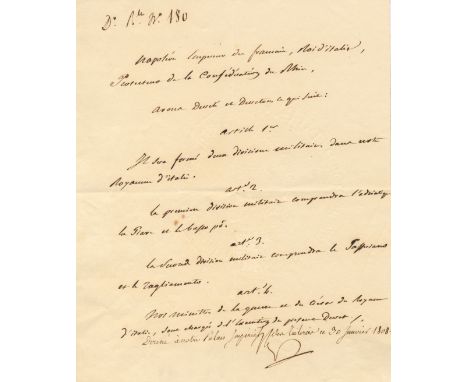 Dn Rle No 180
Napoléon Empereur des français, Roi d'italie,
Protecteur de la Confédération du Rhin,
avons Decrété et Decretons ce qui suit :
article 1er
Il sera formé deux divisions militaires dans notre
Royaume d'italie.
art. 2.
la premiere division militaire comprendra l'adriatiq
la Piave et le basso pô.
art. 3.
la Seconde division militaire comprendra le Passeriano
et le tagliamento.
art. 4.
Nos ministres de la guerre et du trésor du Royaume
d'italie, sont chargés de l'execution du present Decret.
Donné en notre Palais Impérial des Tuileries ce 30 janvier 1808